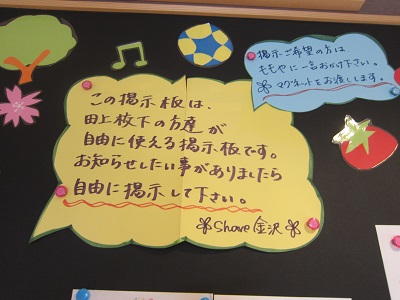 この掲示板は、
田上枚下の方達が
自由に使える掲示板です。
お知らせしたい事がありましたら
自由に掲示して下さい。
Share 金沢
掲示ご希望の方は
ももやに一名おかけ下さい。
マグネットをお渡しします。